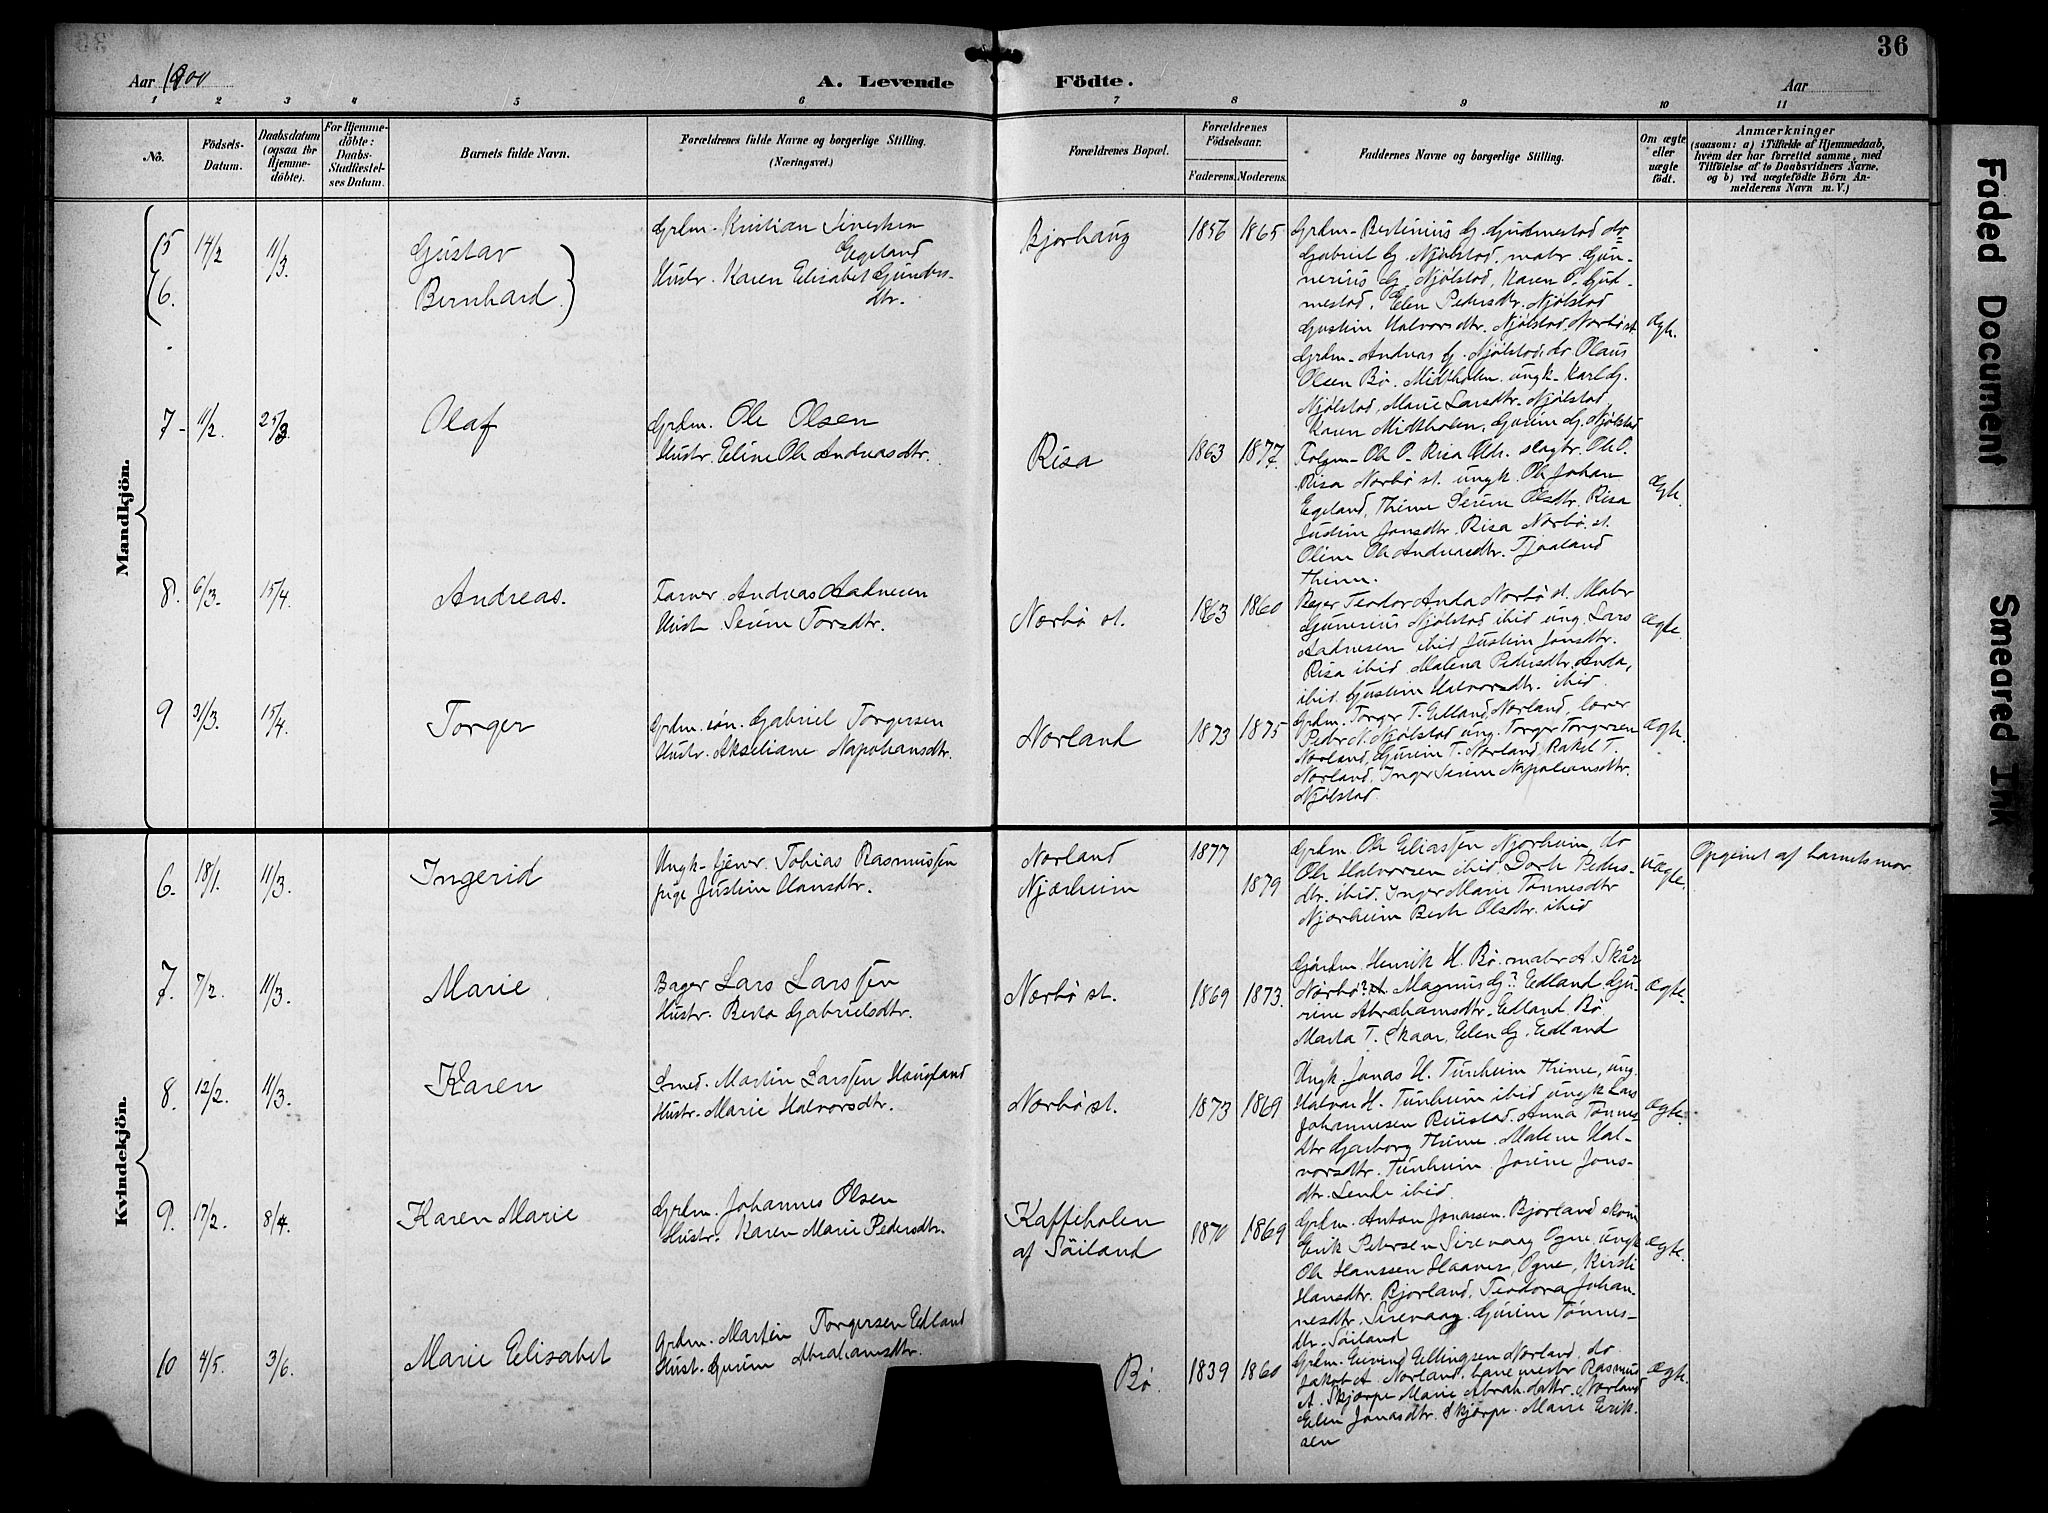 36
Aar 1900
A. Levende Födte.
Aar
1 2 3 4 5 6 7 8 9 10 11
No.
Födsels-
Datum.
Daabsdatum
(ogsaa for
Hjemme-
döbte).
For Hjemme-
döbte:
Daabs-
Stadfæstel-
ses Datum.
Barnets fulde Navn.
Forældrenes fulde Navne og borgerlige Stilling.
(Næringsvei.)
Forældrenes Bopæl.
Forældrenes
Födselsaar.
Faderens. Moderens.
Faddernes Navne og borgerlige Stilling.
Om ægte
eller
uægte
födt.
Anmærkninger
(saasom: a) i Tilfælde af Hjemmedaab,
hvem der har forrettet samme, med
Tilföielse af to Daabsvidners Navne,
og b) ved uægtefödte Börn An-
melderens Navn m. V.)
Mandkjön.
5 14/2 11/3. Gustav
6. Bernhard
Grdm. Kristian Sivertsen
Egeland
Hustr. Karen Elisabet Gunders-
dtr.
Bjorhaug 1856 1865
Grdm- Bertinius G. Gudmestad do
Gabriel G. Njølstad, matr. Gun-
nerius G. Njølstad, Karen O. Gud-
mestad, Elen Pedersdtr. Njølstad
Gustine Halvorsdtr. Njølstad, Norbø st.
Grdm- Andreas G. Njølstad, do Olaus
Olsen Bø. Midtholen. ungk- Karl G.
Njølstad, Marie Larsdtr. Njølstad
Karen Midtholen, Gurine G. Njølstad
Ægte.
7- 11/2. 25/3. Olaf
Grdm. Ole Olsen
Hustr. Eline Ole Andreasdtr.
Risa 1863 1877.
Folgm- Ole O. Risa Old. slagtr. Ole O.
Risa Norbø st. ungk. Ole Johan
Egeland, Thime Serine Olsdtr. Risa
Justine Jonsdtr. Risa Nærbø. st.
Oline Ole Andreasdtr. Tjaaland
Thime.
Ægte.
8. 6/3. 15/4. Andreas.
Farver. Andreas Aadnesen
Hust. Serine Torsdtr.
Nærbø st. 1863 1860
Bager Teodor Anda Norbø st. Matr
Gunerius Njølstad ibid ung. Lars
Aadnesen ibid Justine Jonsdtr.
Risa ibid. Malena Pedersdtr. Anda,
ibid Gustine Halvorsdtr. ibid
Ægte.
9 31/3. 15/4. Torger
Grdm. søn. Gabriel Torgersen
Hustr. Akseliane Napoliansdtr.
Norland 1873 1875
Grdm. Torger T. Edland Norland, lærer
Peder N. Njølstad ung. Torger Torgersen
Norland, Gurine T. Norland, Rakel T.
Norland, Inger Serine Napoliansdtr.
Njølstad.
Ægte.
Kvindekjön.
6. 18/1. 11/3. Ingerid
Ungk- tjener. Tobias Rasmussen
pige Justine Hansdtr.
Norland
Njærheim
1877
1879
Grdm. Ole Eliassen Njorheim, do
Ole Halvorsen ibid, Dorte Peders-
dtr. ibid. Inger Marie Tønnesdtr
Njorheim Berte Olsdtr. ibid
uægte.
Opgivet af barnets mor.
7. 7/2. 11/3. Marie
Bager Lars Larssen
Hustr. Berta Gabrielsdtr.
Nærbø st. 1869 1873.
Gårdm. Henrik H. Bø. matr A. Skår
Nørbø? st. Magnus G? Edland Gu-
rine Abrahamsdtr. Edland, Bø
Marta T. Skaar, Elen G. Edland
Ægte.
8. 12/2. 11/3. Karen
Smed. Martin Larssen Haugland
Hustr. Marie Halvorsdtr.
Nærbø st. 1873 1869
Ungk. Jonas H. Tunheim Thime, ung.
Halvar H. Tunheim ibid, ungk Lars
Johannesen Ruestad. Anna Tønnes-
dtr Garborg Thime. Malene Hal-
vorsdtr. Tunheim Josine Jons-
dtr. Lende ibid.
Ægte.
9. 17/2. 8/4. Karen Marie
Grdm. Johannes Olsen
Hustr. Karen Marie Pedersdtr.
Kaffeholen
af Söiland
1870 1869
Grdm. Anton Jonassen. Bjorland skom
Erik Petersen Sirevaag Ogne, ungk
Ole Hanssen Haaver, Ogne, Kirsti
Hansdtr. Bjorland, Teodora Johan-
nesdtr. Sirevaag. Gurine Tønnes-
dtr. Söiland
Ægte.
10 4/5. 3/6. Marie Elisabet
Grdm. Martin Torgersen Edland
Hust. Gurine Abrahamsdtr.
Bø. 1839 1860
Grdm. Eivind Ellingsen Norland. do
Jakob A. Norland, banemester Rasmus
A. Skjærpe Marie Abrah.dattr. Norland
Elen Jonasdtr. Skjærpe. Marie Erik-
sen
Ægte.
Faded Document
Smeared Ink